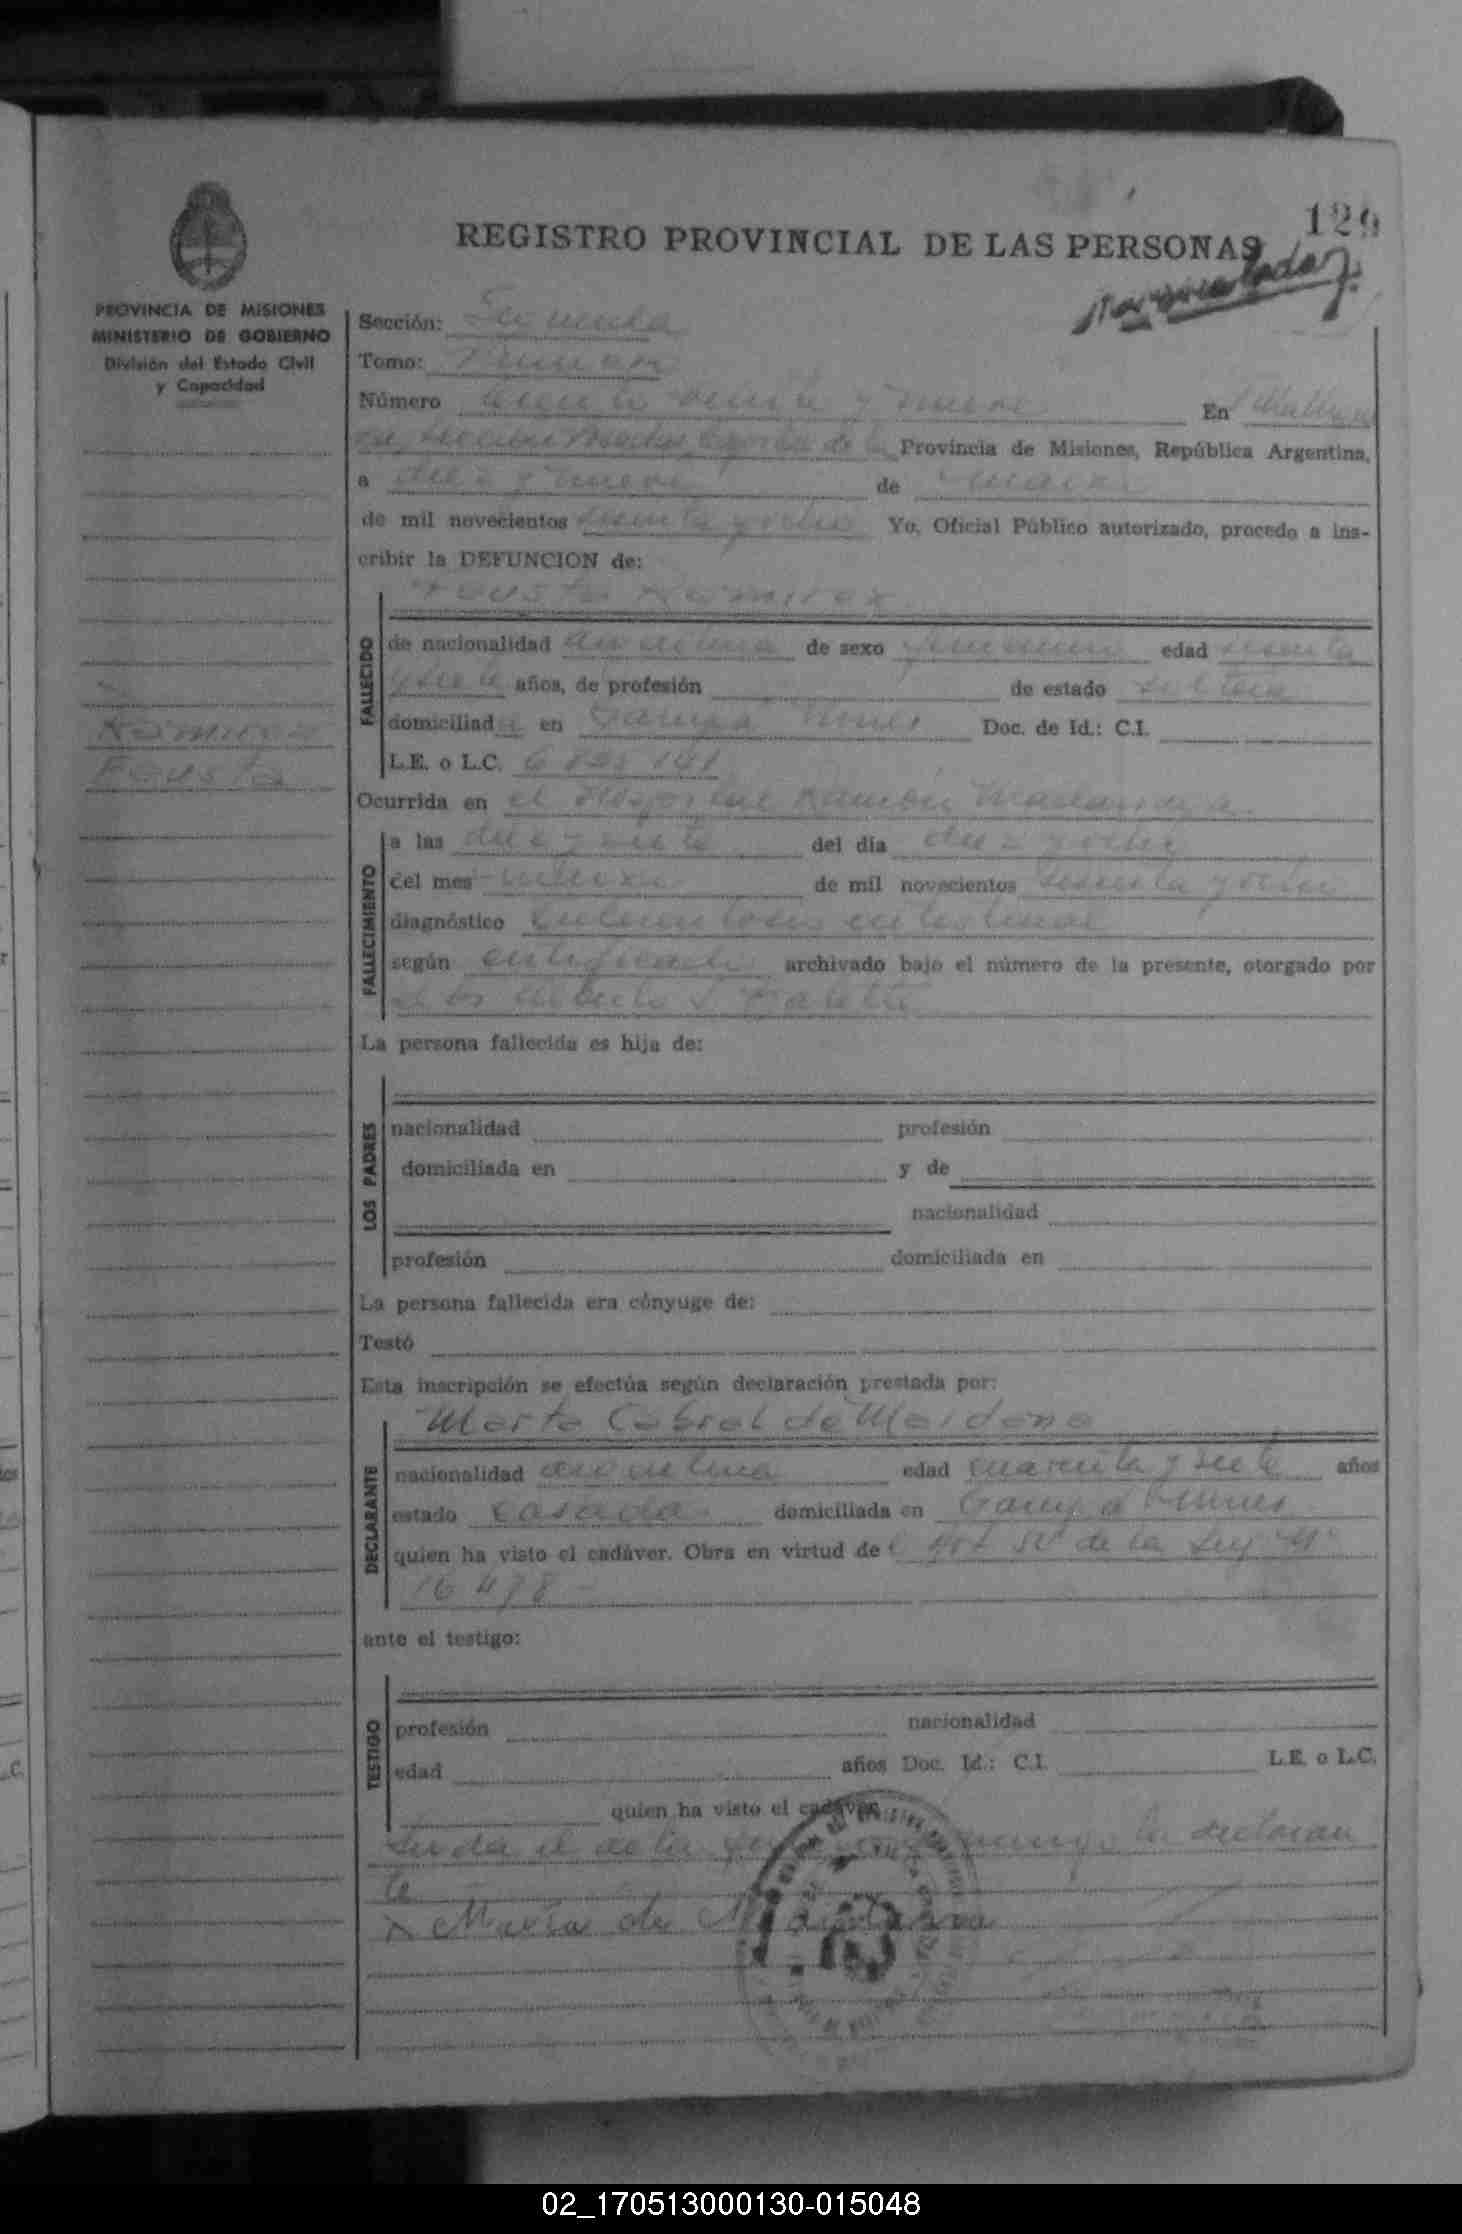 129
REGISTRO PROVINCIAL DE LAS PERSONAS
PROVINCIA DE MISIONES
MINISTERIO DE GOBIERNO
División del Estado Civil
y Capacidad
Sección: Segunda
Tomo: Primero
Número ciento veinte y nueve En
de la Provincia de Misiones, República Argentina,
a diez y nueve de marzo
de mil novecientos sesenta y ocho Yo, Oficial Público autorizado, procedo a ins-
cribir la DEFUNCION de:
Fausta Ramirez
FALLECIDO
de nacionalidad argentina de sexo femenino edad sesenta
y siete años, de profesión de estado soltera
domiciliada en Garupá Mnes Doc. de Id.: C.I.
L.E. o L.C.
Ramirez
Fausta
Ocurrida en el Hospital Ramón Madariaga
FALLECIMIENTO
a las diez y siete del día diez y ocho
del mes marzo de mil novecientos sesenta y ocho
diagnóstico tuberculosis intestinal
según certificado archivado bajo el número de la presente, otorgado por
el Dr Alberto
La persona fallecida es hija de:
LOS PADRES
nacionalidad profesión
domiciliada en y de
nacionalidad
profesión domiciliada en
La persona fallecida era cónyuge de:
Testó
Esta inscripción se efectúa según declaración prestada por:
Marta Cabral de Maidana
DECLARANTE
nacionalidad argentina edad cuarenta y siete años
estado casada domiciliada en Garupá Mnes
quien ha visto el cadáver. Obra en virtud del Art 50 de la Ley Nº
16478-
ante el testigo:
TESTIGO
profesión nacionalidad
edad años Doc. Id.: C.I. L.E. o L.C.
quien ha visto el cadáver
Leida el acta la conmigo la declaran
te
x Maria de Maidana
02_170513000130-015048